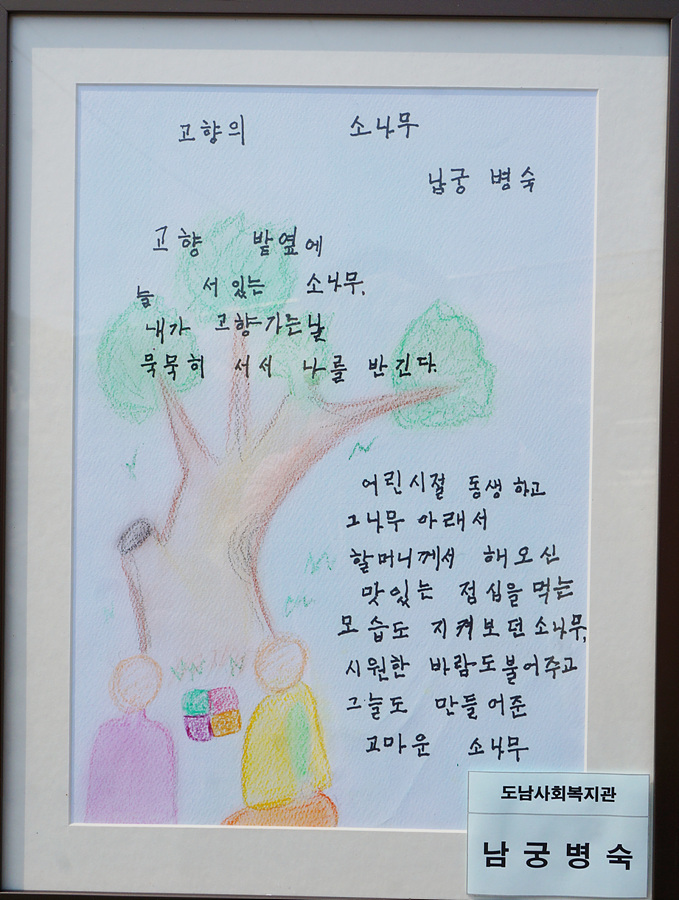 고향의 소나무
남궁 병숙
고향 밭옆에
늘 서 있는 소나무.
내가 고향가는날
묵묵히 서서 나를 반긴다.
어린시절 동생하고
그나무 아래서
할머니께서 해오신
맛있는 점심을 먹는
모습도 지켜보던 소나무,
시원한 바람도불어주고
그늘도 만들어준
고마운 소나무
도남사회복지관
남궁병숙